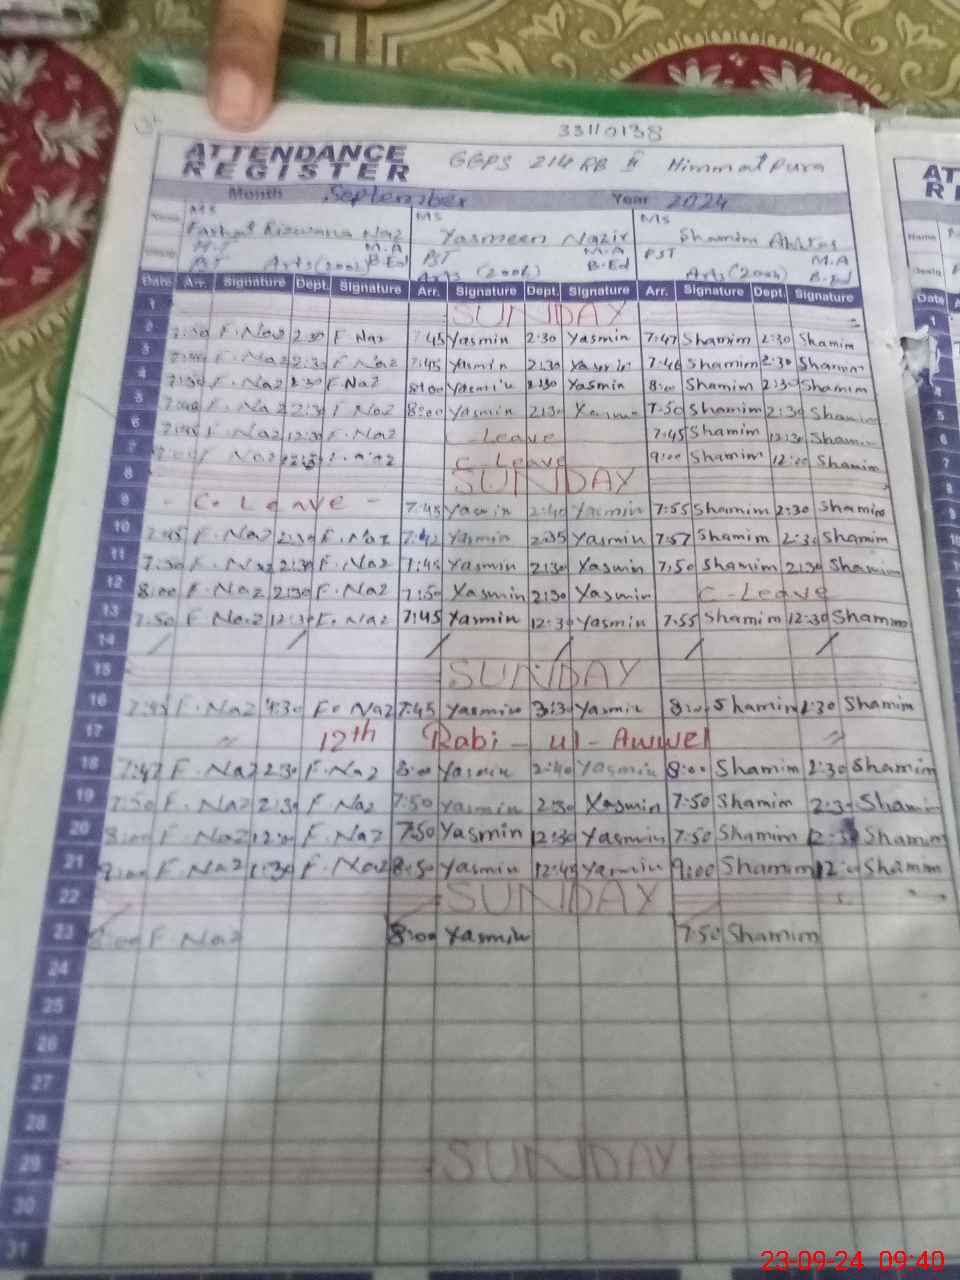 33110138
ATTENDANCE
REGISTER
GGPS 214 RB II Himmat Pura
Month September Year 2024
MS MS MS
Rizwana Naz Yasmeen Nazir Shamim
M.A PST M.A PST M.A
Arts (2002) B-Ed Arts (2006) B-Ed Arts (2004) B-Ed
Date Arr. Signature Dept. Signature Arr. Signature Dept. Signature Arr. Signature Dept. Signature Date
1 SUNDAY 1
2 F. Naz 2:30 F Naz 7:45 Yasmin 2:30 Yasmin 7:47 Shamim 2:30 Shamim
3 F. Naz 2:30 F Naz 7:45 Yasmin 2:30 Yasmin 7:46 Shamim 2:30 Shamim
4 7:50 F. Naz 2:30 F. Naz 8:00 Yasmin 2:30 Yasmin 8:00 Shamim 2:30 Shamim 4
5 F. Naz 2:30 F. Naz 8:00 Yasmin 2:30 Yasmin 7:50 Shamim 2:30 Shamim 5
6 7:45 F. Naz 12:30 F. Naz Leave 7:45 Shamim 12:30 Shamim 6
7 Naz C. Leave 9:00 Shamim Shamim 7
8 SUNDAY 8
9 - C. Leave - 7:45 Yasmin 2:40 Yasmin 7:55 Shamim 2:30 Shamim 9
10 7:45 F. Naz 2:30 F. Naz 7:42 Yasmin 2:35 Yasmin 7:57 Shamim 2:30 Shamim 10
11 7:50 F. Naz 2:30 F. Naz 7:45 Yasmin 2:30 Yasmin 7:50 Shamim 2:30 Shamim 11
12 8:00 F. Naz 2:30 F. Naz 7:50 Yasmin 2:30 Yasmin C-Leave 12
13 7:50 F Naz 12:30 F. Naz 7:45 Yasmin 12:30 Yasmin 7:55 Shamim 12:30 Shamim
14 / / / / / /
15 SUNDAY
16 7:45 F. Naz F. Naz 7:45 Yasmin Yasmin 8:00 Shamim 2:30 Shamim
17 " 12th Rabi-ul-Awwel "
18 7:47 F. Naz 2:30 F. Naz 8:00 Yasmin 2:40 Yasmin 8:00 Shamim 2:30 Shamim
19 7:50 F. Naz 2:30 F. Naz 7:50 Yasmin 2:30 Yasmin 7:50 Shamim 2:30 Shamim
20 8:00 F. Naz F. Naz 7:50 Yasmin 12:30 Yasmin 7:50 Shamim Shamim
21 F. Naz 1:30 F. Naz 8:50 Yasmin 12:45 Yasmin 9:00 Shamim Shamim
22 SUNDAY
23 8:00 F. Naz 8:00 Yasmin 7:50 Shamim
24
25
26
27
28
29 SUNDAY
30
31
23-09-24 09:40